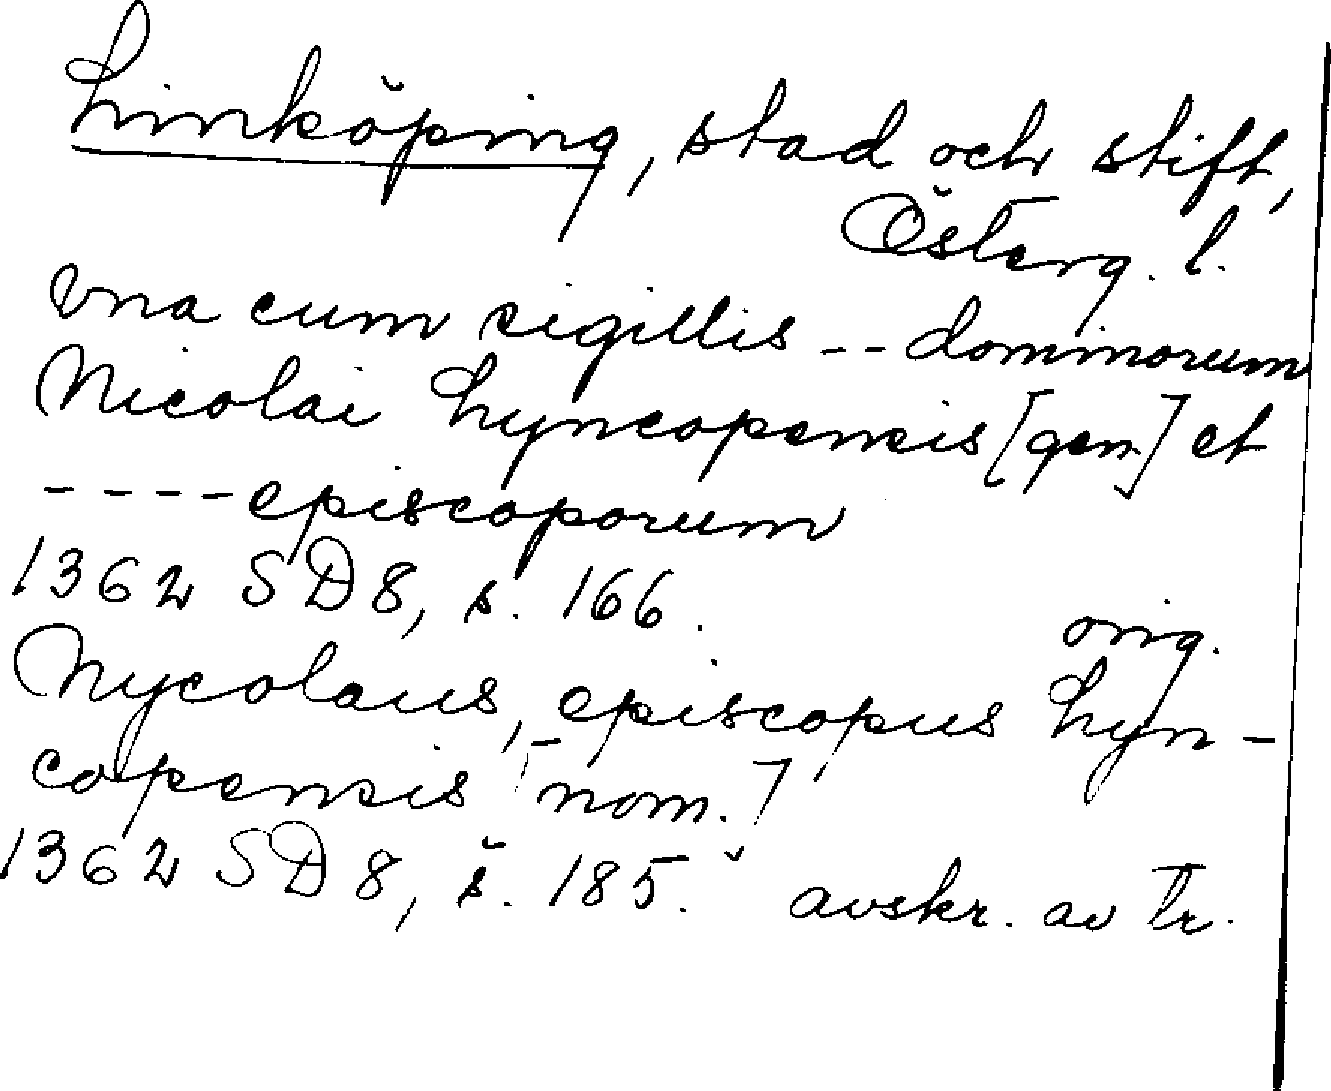 Linköping, stad och stift,
Österg. l.
vna cum sigillis -- dominorum
Nicolai Lyncopensis [gen.] et
---- episcoporum
1362 SD 8, s. 166.
orig.
Nycolaus, episcopus Lyn-
copensis [nom.]
1362 SD 8, s. 185. avskr. av tr.